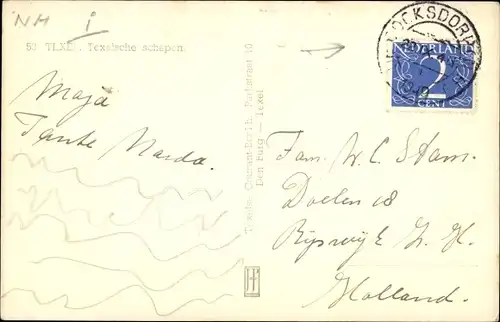 NH i
53 TEXEL. Texelsche schapen.
Maja
Tante Marda.
Texelse Courant-Boekh. Parkstraat 10
Den Burg — Texel
COCKSDORP
NEDERLAND
2
CENT
Fam. W. C. Stam.
Doelen 18
Ryswyk Z. H.
Holland.